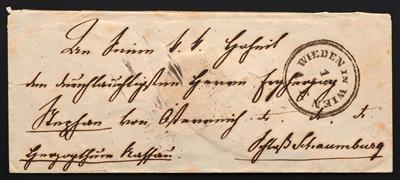 An Seine k. k. Hoheit
den durchlauchtigsten Herrn Erzherzog
Stephan von Österreich &. &. &.
Herzogthum Nassau Schloß Schaumburg
WIEDEN IN WIEN